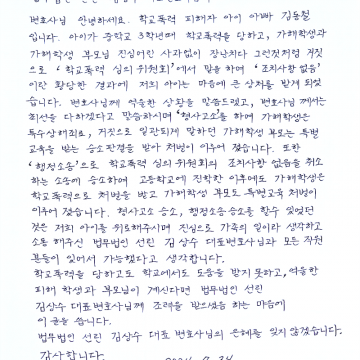 변호사님 안녕하세요. 학교폭력 피해자 아이 아빠 김동철
입니다. 아이가 중학교 3학년때 학교폭력을 당하고, 가해학생과
가해학생 부모님 진심어린 사과없이 장난치다 그런것처럼 거짓
으로 '학교폭력 심의위원회'에서 말을 하여 '조치사항 없음'
이란 황당한 결과에 저희 아이는 마음에 큰 상처를 받게 되었
습니다. 변호사님께 억울한 상황을 말씀드렸고, 변호사님께서는
최선을 다하겠다고 말씀하시며 '형사고소'를 하여 가해학생은
특수상해죄로, 거짓으로 일관되게 말하던 가해학생 부모는 특별
교육을 받는 승소판결을 받아 처벌이 이루어 졌습니다. 또한
'행정소송'으로 학교폭력 심의위원회의 조치사항 없음을 취소
하는 소송에 승소하여 고등학교에 진학한 이후에도 가해학생은
학교폭력으로 처벌을 받고 가해학생 부모도 특별교육 처벌이
이루어 졌습니다. 형사고소 승소, 행정소송승소를 할수 있었던
것은 저희 아이를 위로해주시며 진심으로 가족의 일이라 생각하고
소통해주신 법무법인 선린 김상수 대표변호사님과 모든 직원
분들이 있어서 가능했다고 생각합니다.
학교폭력을 당하고도 학교에서도 도움을 받지 못하고, 억울한
피해 학생과 부모님이 계신다면 법무법인 선린
김상수 대표변호사님께 조력을 받으셨음 하는 마음에
이 글을 씁니다.
법무법인 선린 김상수 대표 변호사님의 은혜를 잊지 않겠습니다.
감사합니다.